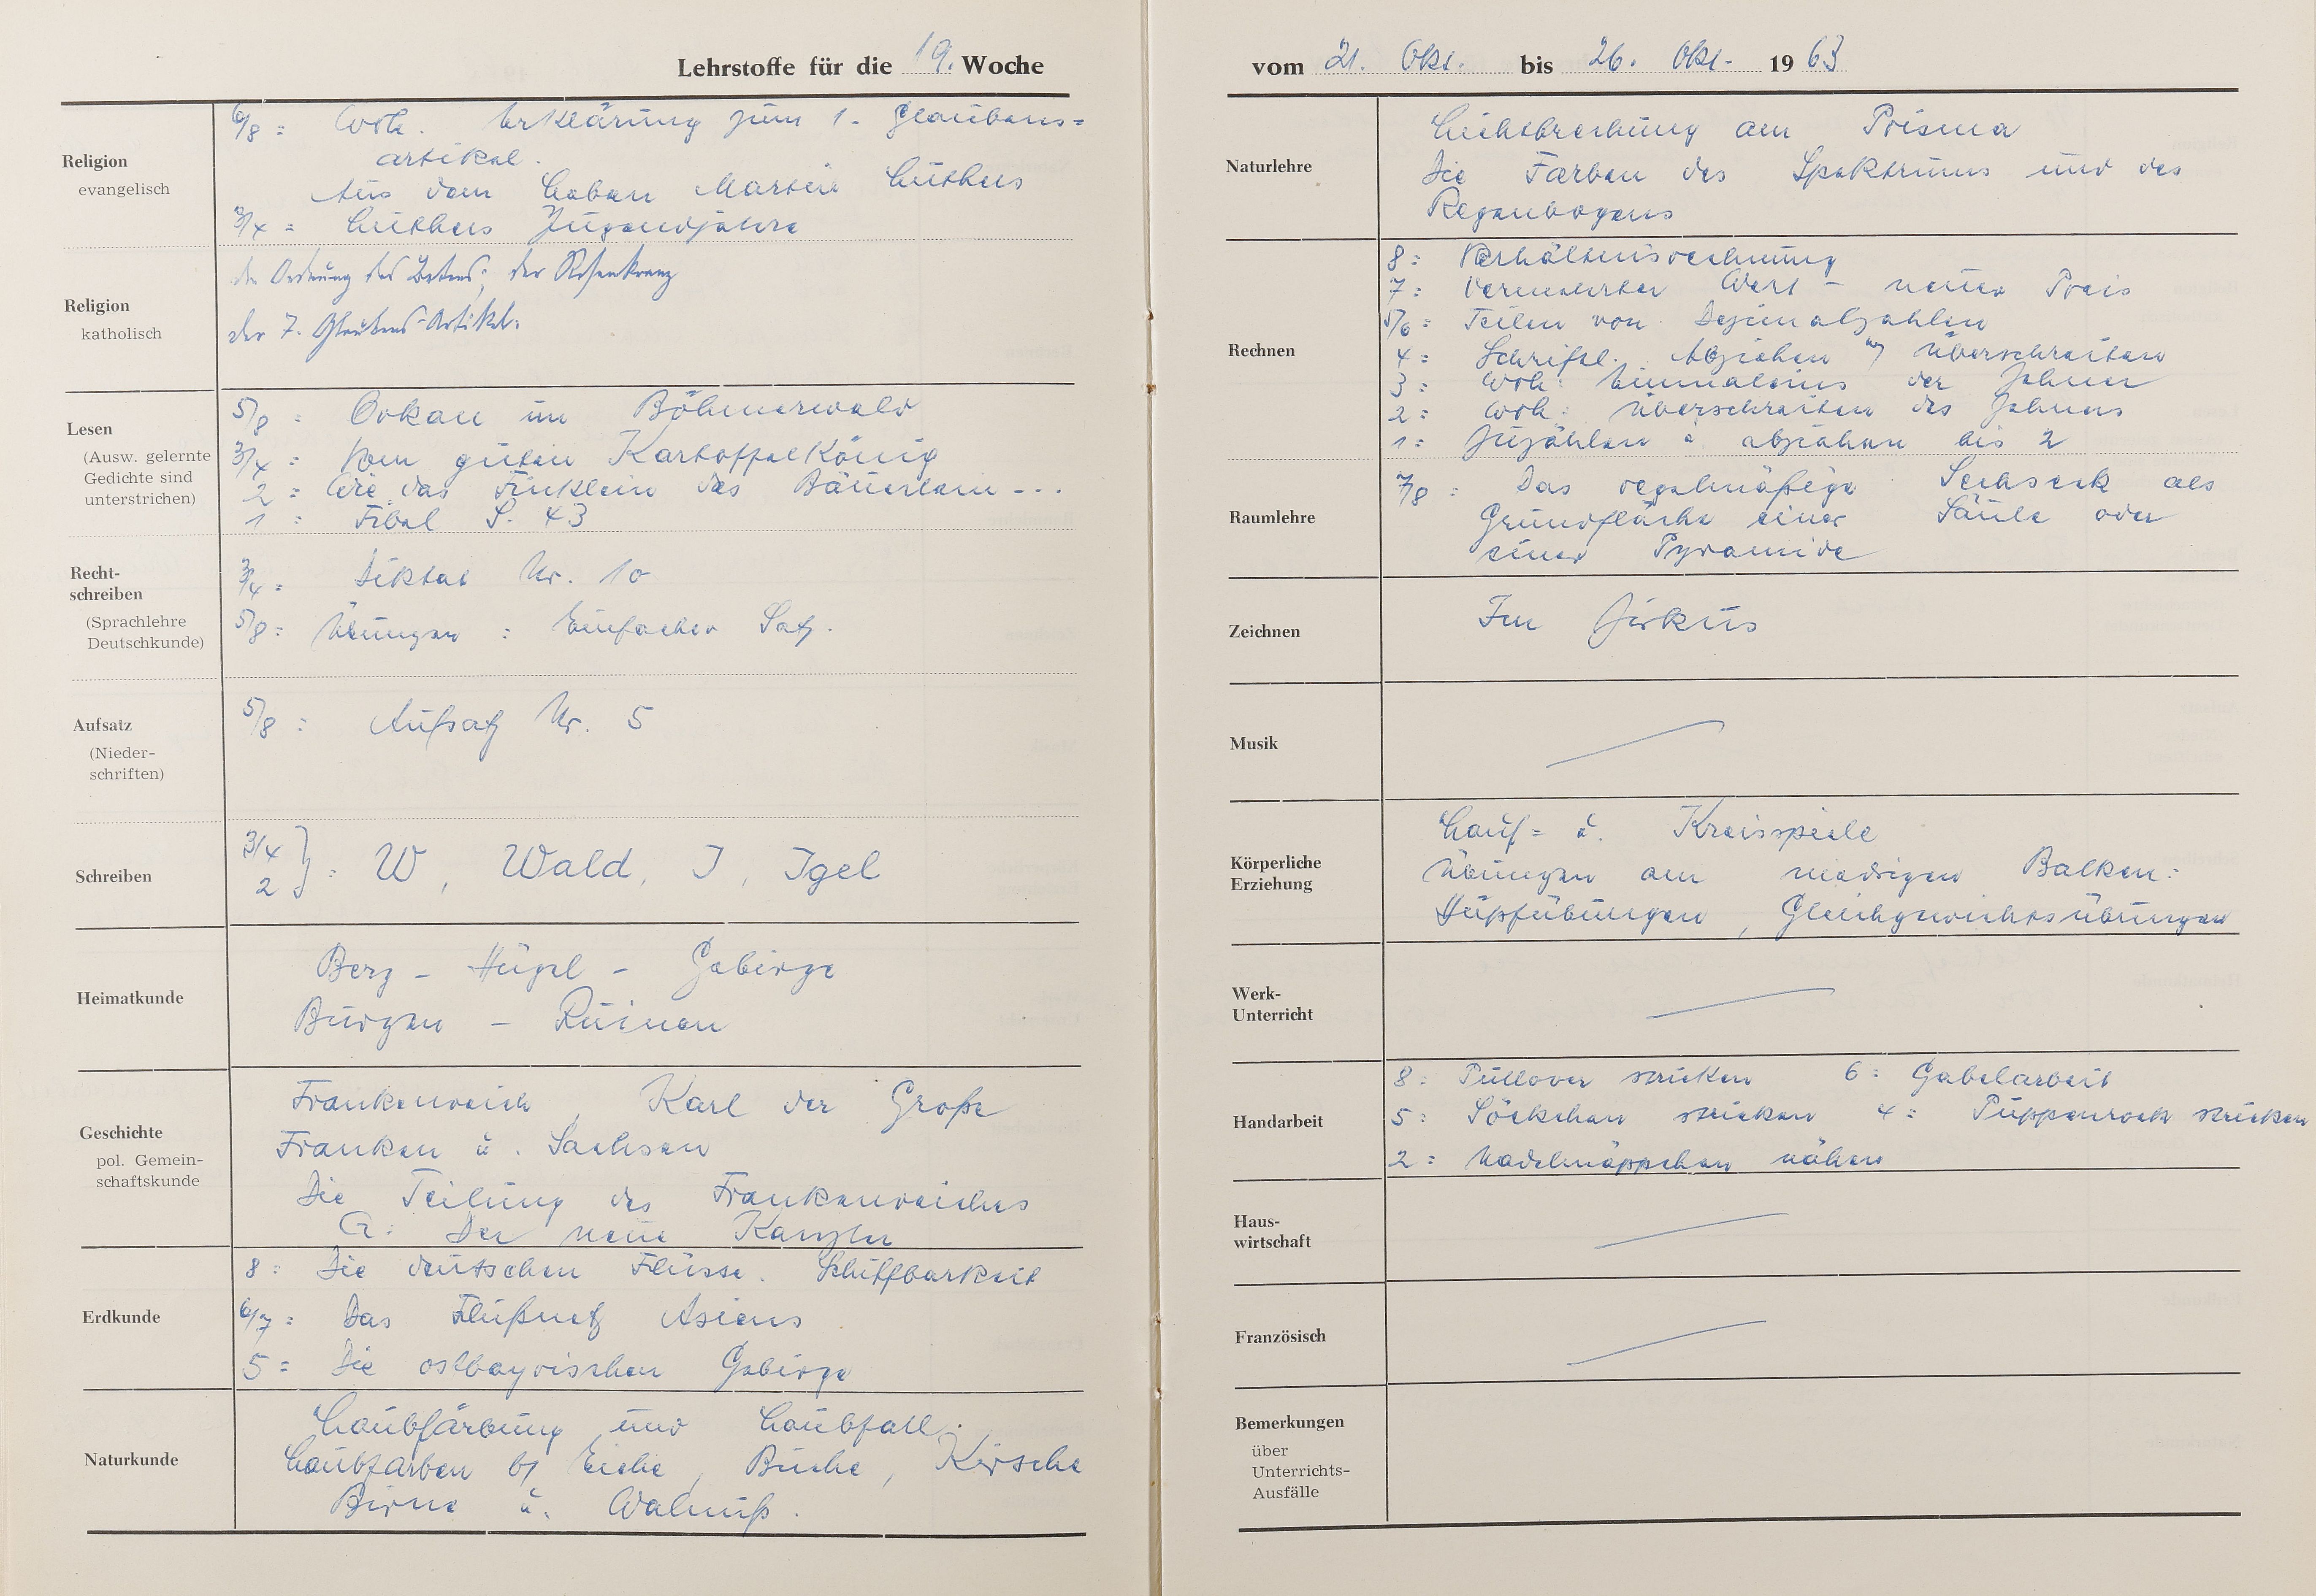 Lehrstoffe für die 19. Woche
Religion
evangelisch
6/8 = Wdh. Erklärung zum 1. Glaubens=
artikel.
Aus dem Leben Martin Luthers
3/4 = Luthers Jugendjahre
Religion
katholisch
die Ordnung des Betens; der Rosenkranz
der 7. Glaubens-Artikel.
Lesen
(Ausw. gelernte
Gedichte sind
unterstrichen)
5/8 = Orkan im Böhmerwald
3/4 = Vom guten Kartoffelkönig
2 = Wie das Finklein das Bäuerlein ---
1 = Fibel S. 43
Recht-
schreiben
(Sprachlehre
Deutschkunde)
3/4 = Diktat Nr. 10
5/8 = Übungen : Einfacher Satz.
Aufsatz
(Nieder-
schriften)
5/8 : Aufsatz Nr. 5
Schreiben
3/4
2 } : W, Wald, I, Igel
Heimatkunde
Berg - Hügel - Gebirge
Burgen - Ruinen
Geschichte
pol. Gemein-
schaftskunde
Frankenreich, Karl der Große
Franken u. Sachsen
Die Teilung des Frankenreiches
G: Der neue Kanzler
Erdkunde
8 = Die deutschen Flüsse. Schiffbarkeit
6/7 = Das Flußnetz Asiens
5 = Die ostbayrischen Gebirge
Naturkunde
Laubfärbung und Laubfall.
Laubfarben b/ Eiche, Buche, Kirsche
Birne u. Walnuß.
vom 21. Okt. bis 26. Okt. 1963
Naturlehre
Lichtbrechung am Prisma
Die Farben des Spektrums und des
Regenbogens
Rechnen
8 = Verhältnisrechnung
7 = Vermehrter Wert - neuer Preis
5/6 = Teilen von Dezimalzahlen
4 = Schriftl. Abziehen m/ Überschreiten
3 = Wdh: Einmaleins der Zehner
2 = Wdh: Überschreiten des Zehners
1 = Zuzählen u. abziehen bis 2
Raumlehre
7/8 = Das regelmäßige Sechseck als
Grundfläche einer Säule oder
einer Pyramide
Zeichnen
Im Zirkus
Musik
Körperliche
Erziehung
Lauf= u. Kreisspiele
Übungen am niedrigen Balken:
Hüpfübungen, Gleichgewichtsübungen
Werk-
Unterricht
Handarbeit
8 = Pullover stricken 6 = Gabelarbeit
5 = Söckchen stricken 4 = Puppenrock stricken
2 = Nadelmäppchen nähen
Haus-
wirtschaft
Französisch
Bemerkungen
über
Unterrichts-
Ausfälle